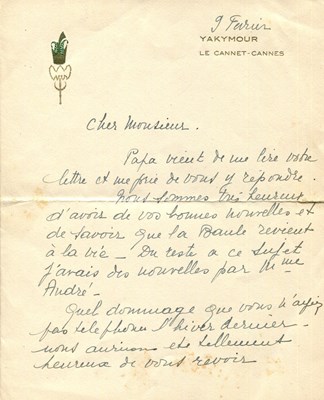 9 Février
YAKYMOUR
LE CANNET-CANNES
Cher Monsieur.
Papa vient de me lire votre
lettre et me prie de vous y repondre.
Nous sommes très heureux
d'avoir de vos bonnes nouvelles et
de savoir que la Baule revient
à la vie - Du reste a ce sujet
j'avais des nouvelles par Mme
André -
Quel dommage que vous n'ayiez
pas telephoné l'hiver dernier -
nous aurions été tellement
heureux de vous revoir